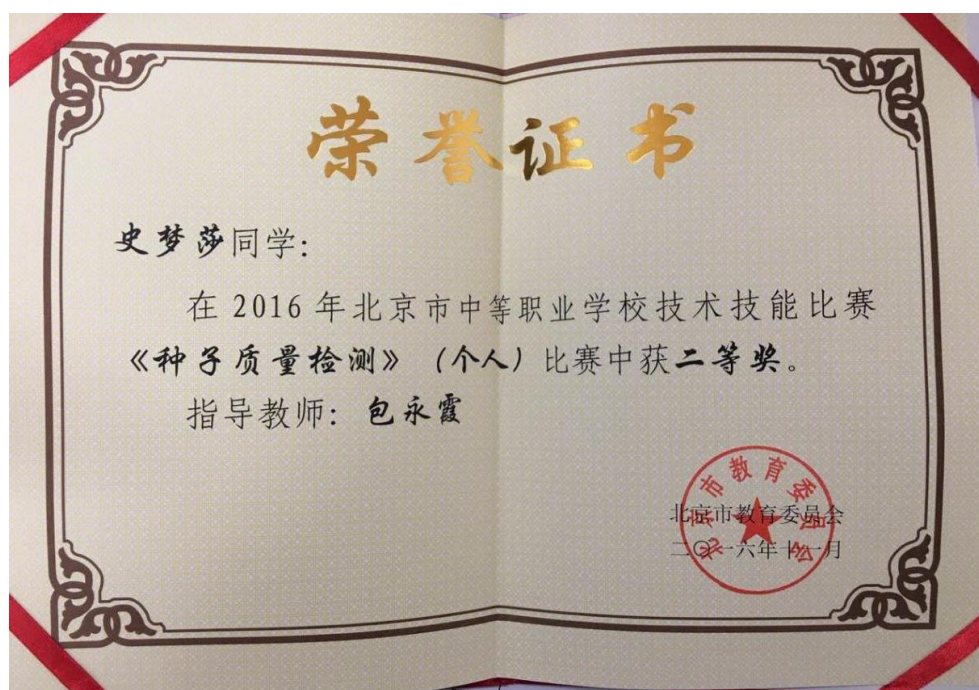 荣誉证书
史梦莎同学：
在2016年北京市中等职业学校技术技能比赛
《种子质量检测》（个人）比赛中获二等奖。
指导教师：包永霞
北京市教育委员会
北京市教育委员会
二〇一六年十一月